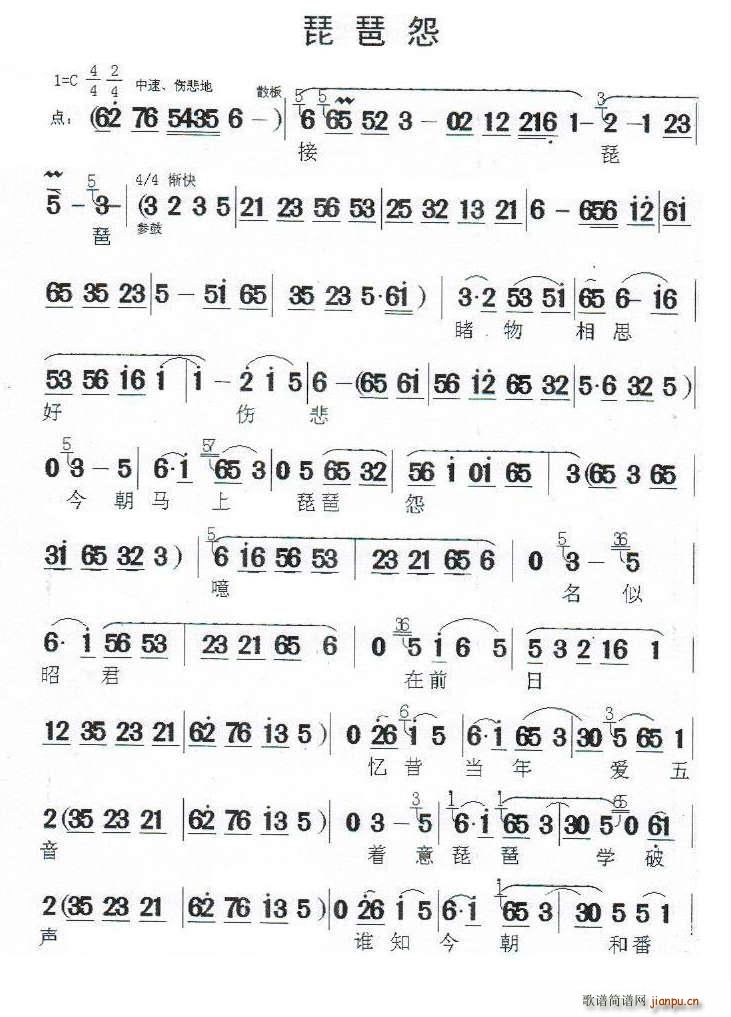 琵琶怨
1=C 4/4 2/4 中速、伤悲地 散板
点: (62 76 5435 6 -) | 5 6 5 65 52 3 - 02 12 216 1 - 3 2 - 1 23
接 琵
5 - 5 3 - | 4/4 渐快 (3 2 3 5 | 21 23 56 53 | 25 32 13 21 | 6 - 656 12 | 61
琶 参鼓
65 35 23 | 5 - 51 65 | 35 23 5·61 ) | 3·2 53 51 | 65 6 - 16
睹 . 物 相 思
53 56 16 1 | 1 - 2 1 5 | 6 - (65 61 | 56 12 65 32 | 5·6 32 5 )
好 伤 悲
0 5 3 - 5 | 6·1 57 65 3 | 0 5 65 32 | 56 1 01 65 | 3 (65 3 65
今 朝 马 上 琵琶 怨
31 65 32 3 ) | 5 6 16 56 53 | 23 21 65 6 | 0 5 3 - 36 5
噫 名 似
6· 1 56 53 | 23 21 65 6 | 0 36 5 1 6 5 | 5 3 2 16 1
昭 君 在前 日
12 35 23 21 | 62 76 13 5 ) | 0 26 6 1 5 | 6·1 65 3 | 30 3 5 65 1
忆 昔 当 年 爱 五
2 (35 23 21 | 62 76 13 5 ) | 0 3 - 3 5 | 1 6·1 1 65 3 | 30 5 0 65 61
音 着 意 琵 琶 学 破
2 (35 23 21 | 62 76 13 5 ) | 0 26 1 5 | 6·1 1 65 3 | 30 5 5 1
声 谁 知 今 朝 和番
歌谱简谱网 jianpu.cn